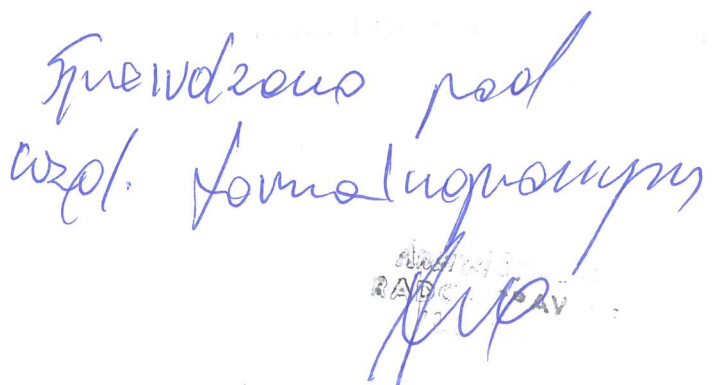 Sprawdzono pod
wzgl. formalnoprawnym
RADC